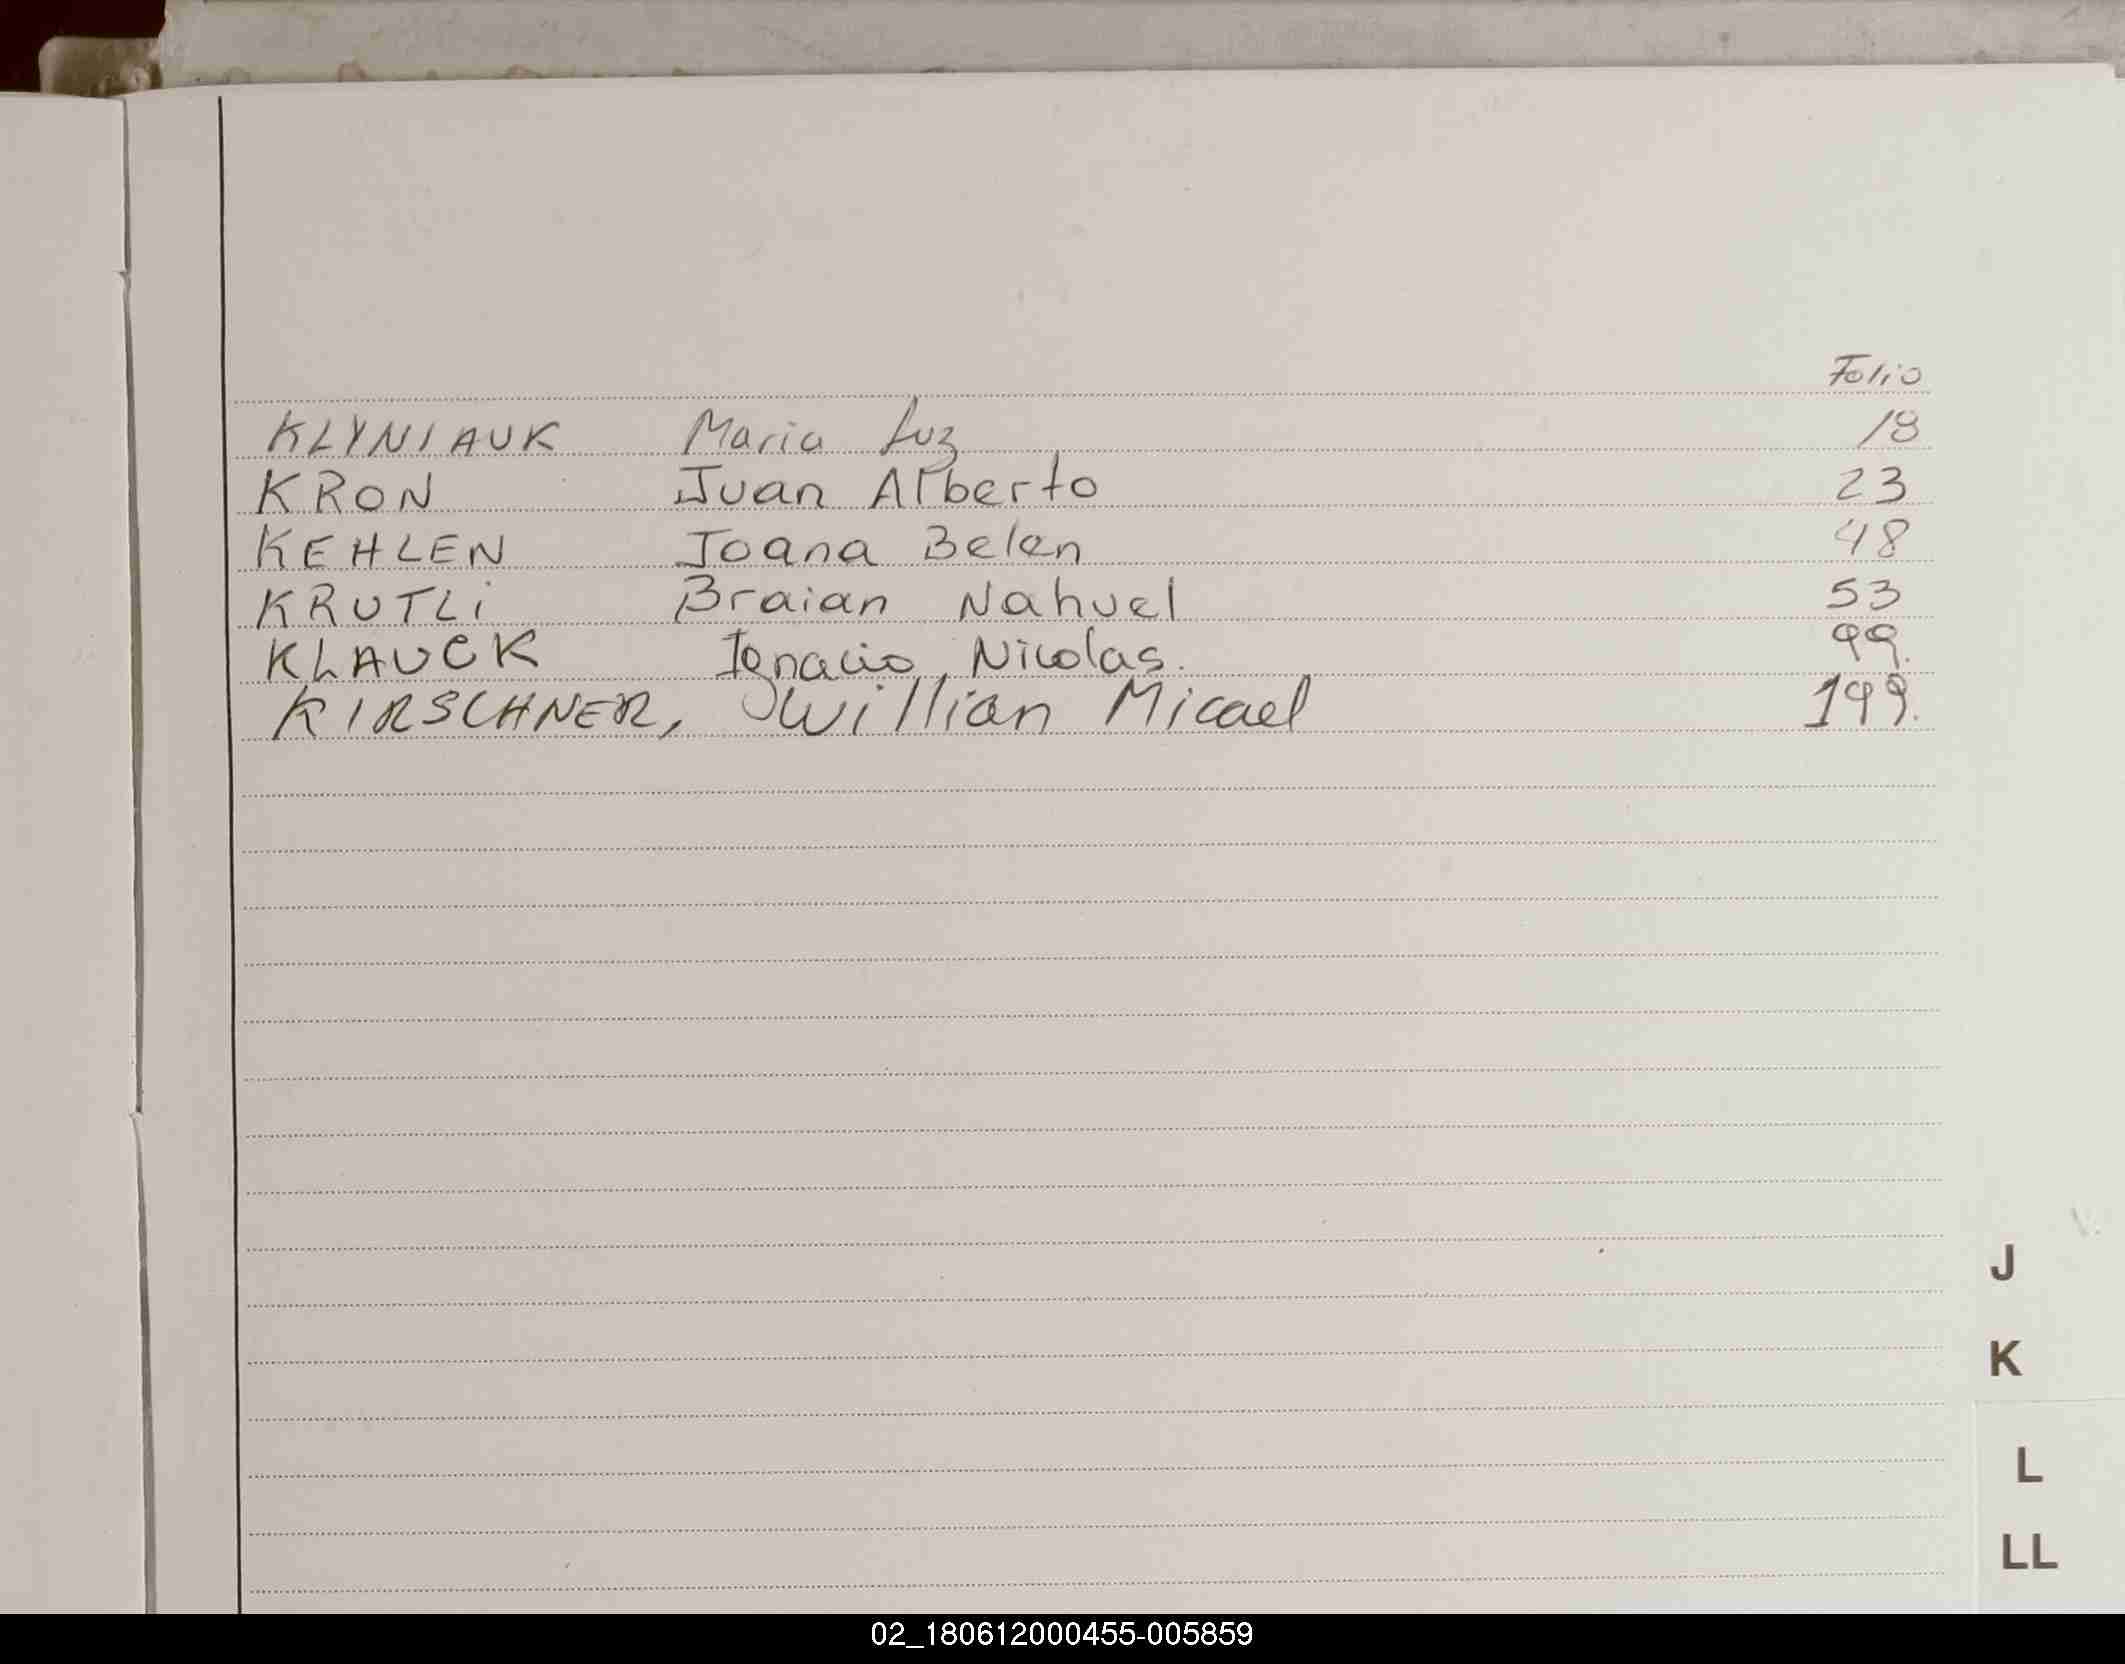 Folio
KLYNIAUK Maria Luz 18
KRON Juan Alberto 23
KEHLEN Joana Belen 48
KRUTLi Braian Nahuel 53
KLAUCK Ignacio, Nicolas. 99.
KIRSCHNER, Willian Micael 199.
J
K
L
LL
02_180612000455-005859